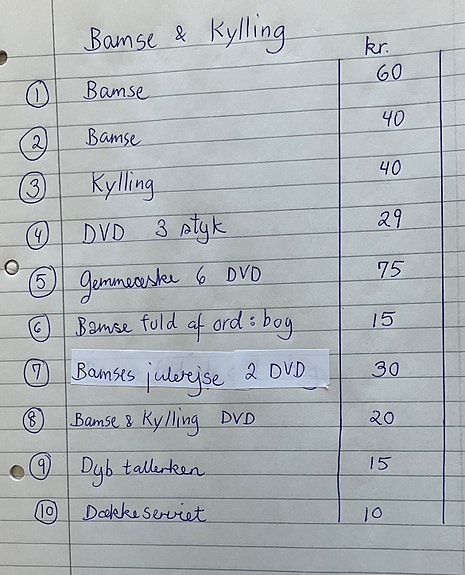 Bamse & Kylling
kr.
1 Bamse 60
2 Bamse 40
3 Kylling 40
4 DVD 3 styk 29
5 Gemmeæske 6 DVD 75
6 Bamse fuld af ord : bog 15
7 Bamses julerejse 2 DVD 30
8 Bamse & Kylling DVD 20
9 Dyb tallerken 15
10 Dækkeserviet 10